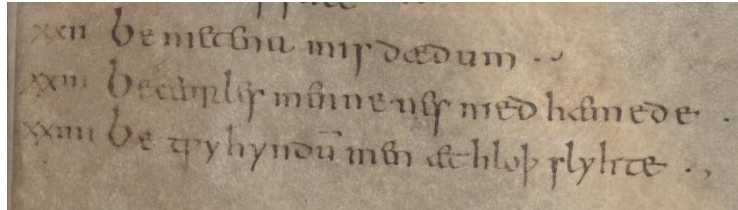 xxii Be nietena mis dædum
xxiii Be ceorles mennenes nied hæmede .
xxiiii Be tƿyhyndū men æt hloþ slyhte .,